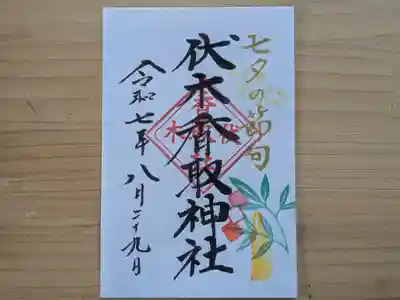 七夕の節句
伏木香取神社
令和七年八月二十九日